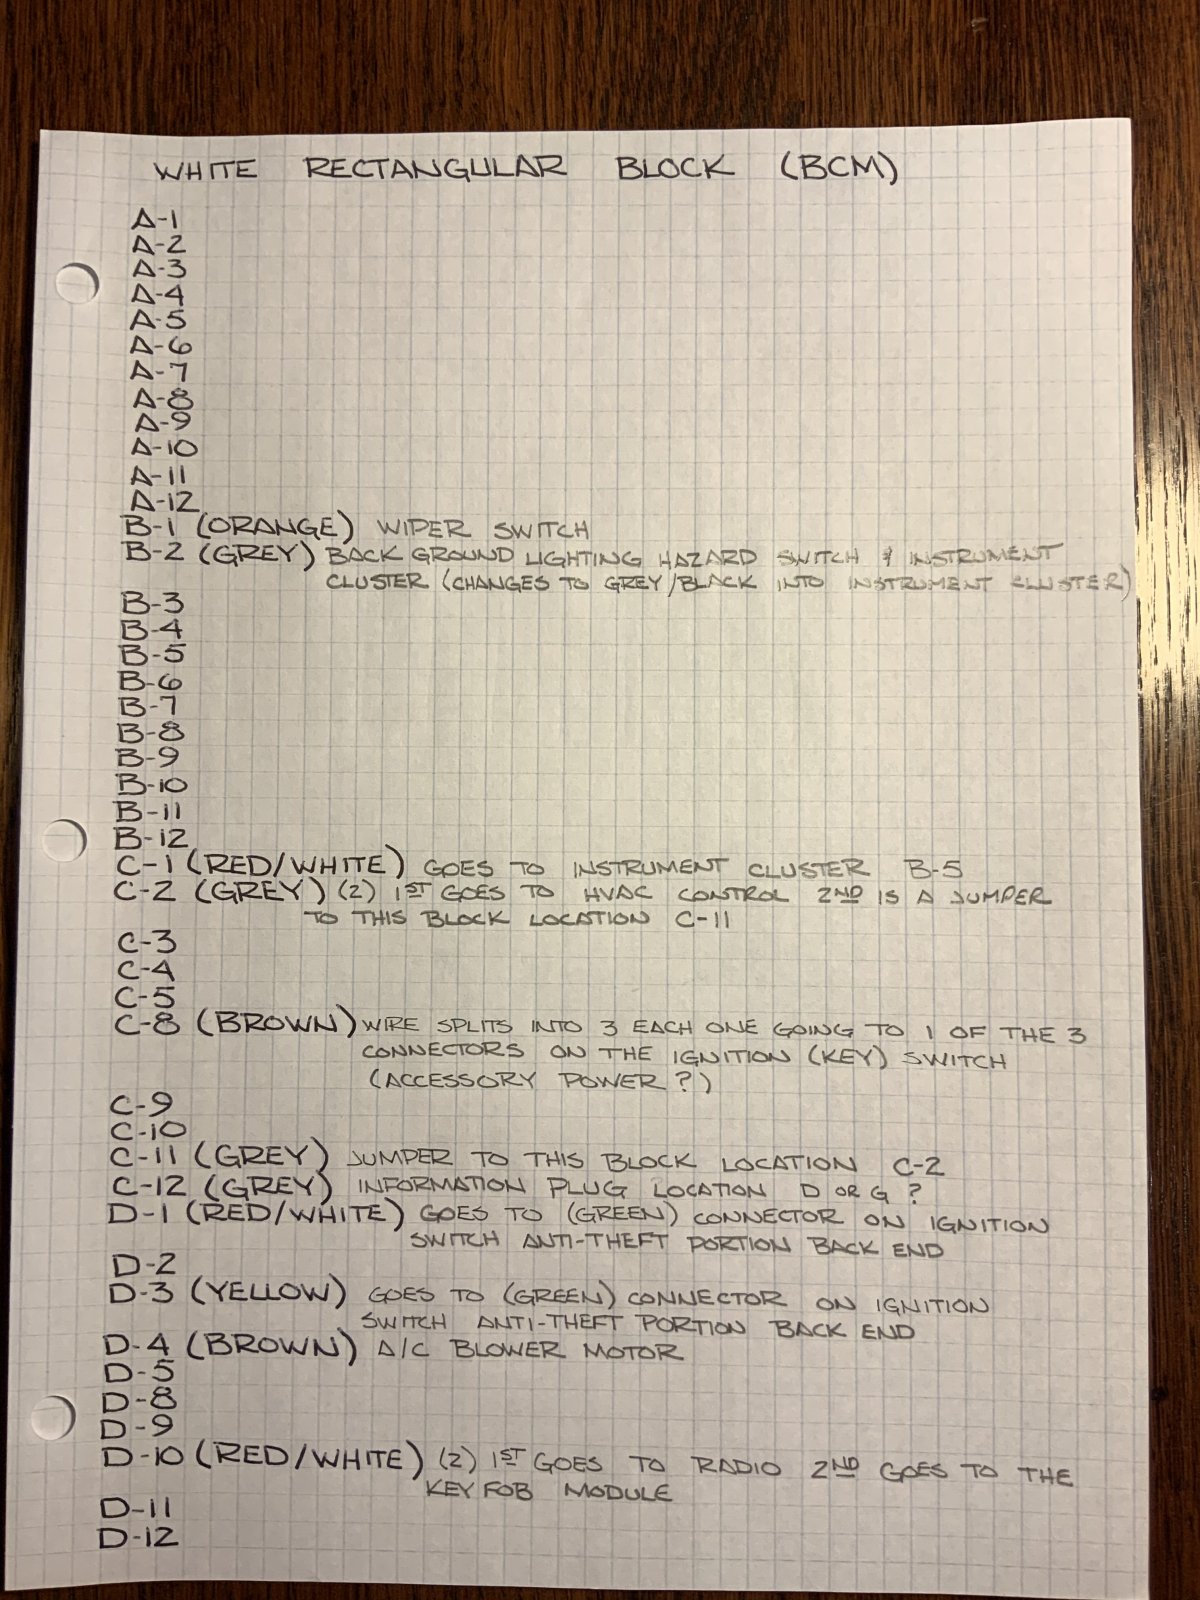 WHITE RECTANGULAR BLOCK (BCM)
A-1
A-2
A-3
A-4
A-5
A-6
A-7
A-8
A-9
A-10
A-11
A-12
B-1 (ORANGE) WIPER SWITCH
B-2 (GREY) BACK GROUND LIGHTING HAZARD SWITCH & INSTRUMENT
CLUSTER (CHANGES TO GREY/BLACK INTO INSTRUMENT CLUSTER)
B-3
B-4
B-5
B-6
B-7
B-8
B-9
B-10
B-11
B-12
C-1 (RED/WHITE) GOES TO INSTRUMENT CLUSTER B-5
C-2 (GREY) (2) 1ST GOES TO HVAC CONTROL 2ND IS A JUMPER
TO THIS BLOCK LOCATION C-11
C-3
C-4
C-5
C-8 (BROWN) WIRE SPLITS INTO 3 EACH ONE GOING TO 1 OF THE 3
CONNECTORS ON THE IGNITION (KEY) SWITCH
(ACCESSORY POWER?)
C-9
C-10
C-11 (GREY) JUMPER TO THIS BLOCK LOCATION C-2
C-12 (GREY) INFORMATION PLUG LOCATION D OR G ?
D-1 (RED/WHITE) GOES TO (GREEN) CONNECTOR ON IGNITION
SWITCH ANTI-THEFT PORTION BACK END
D-2
D-3 (YELLOW) GOES TO (GREEN) CONNECTOR ON IGNITION
SWITCH ANTI-THEFT PORTION BACK END
D-4 (BROWN) A/C BLOWER MOTOR
D-5
D-8
D-9
D-10 (RED/WHITE) (2) 1ST GOES TO RADIO 2ND GOES TO THE
KEY FOB MODULE
D-11
D-12